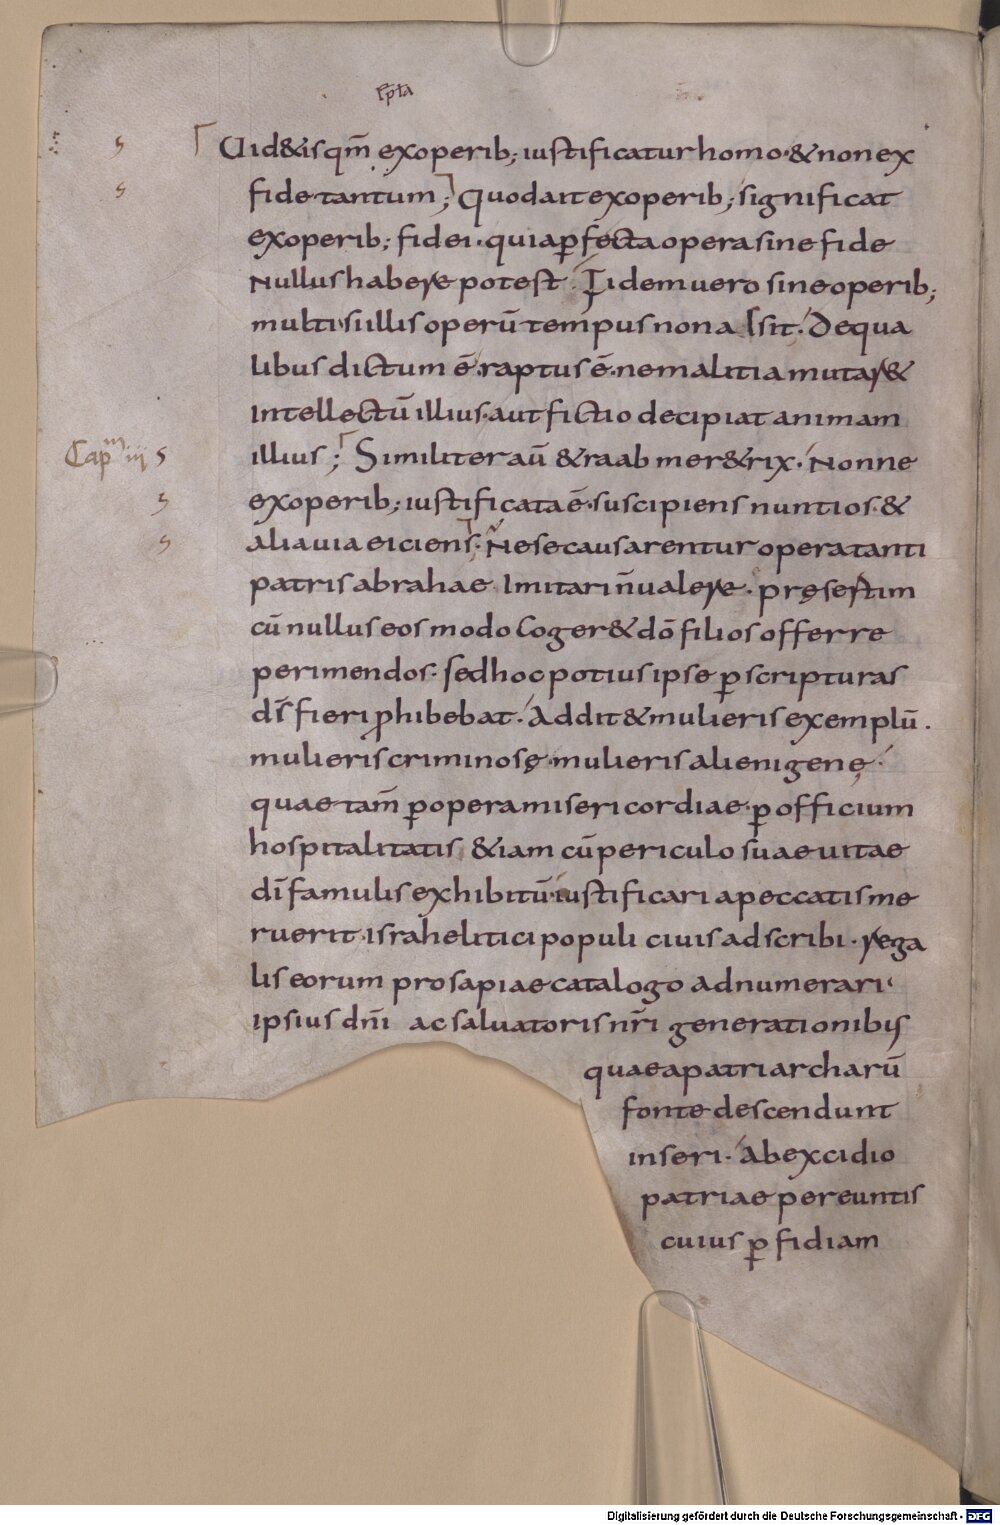 Uid&is qm̄ exoperib; iustificatur homo· & non ex
fide tantum; Quod ait exoperib; significat
exoperib; fidei · quia ꝑfecta opera sine fide
Nullus habere potest · Fidem uero sine operib;
multi si illis operū tempus non
libus dictum ē· raptus ē· ne malitia mutar&
Intellectū illius· aut fictio decipiat animam
illius; Similiter aū & raab mer&rix· Nonne
Cap m iij
exoperib; iustificata ē· suscipiens nuntios· &
alia uia eiciens· Ne se causarentur opera tanti
patris abrahae Imitari n̄ ualere · pręsertim
cū nullus eos modo coger& dō filios offerre
perimendos· sed hoc potius ipse ꝑ scripturas
dī fieri ꝓhibebat· Addit & mulieris exemplū ·
mulieris criminosę· mulieris alienigenę·
quae tam̄ ꝑ opera misericordiae· ꝑ officium
hospitalitatis &iam cū periculo suae uitae
dī famulis exhibitū· iustificari a peccatis me
ruerit· israhelitici populi ciuis adscribi · rega
lis eorum prosapiae catalogo adnumerari·
ipsius dn̄i ac saluatoris nr̄i generationibus
quae a patriarcharū
fonte descendunt
inseri· Ab excidio
patriae pereuntis
cuius ꝑfidiam
Digitalisierung gefördert durch die Deutsche Forschungsgemeinschaft - DFG